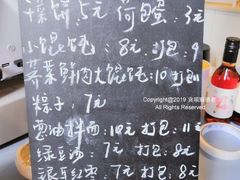 菜饼5元 荷包蛋:3元
小馄饨:8元 打包9
荠菜鲜肉大馄饨:10 打包11
粽子:7元
葱油拌面:10元 打包:11元
绿豆汤:7元 打包:8元
银耳红枣:7元 打包:8元
Copyright@2019